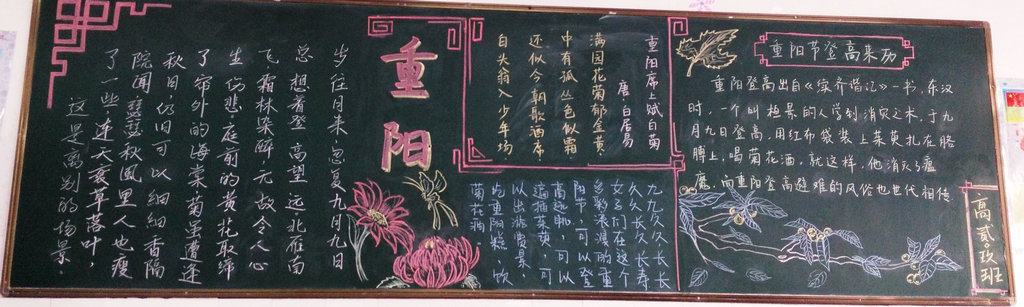 重阳
岁往月来,忽复九月九日
总想着登高望远,北雁南
飞,霜林染醉,无故令人心
生伤悲,庭前的黄花取缔
了帘外的海棠,菊里遭逢
秋日,仍旧可以细细香隔
院闻。瑟瑟秋風里人也瘦
了一些,连天衰草落叶,
这是离别的场景。
重阳席上赋白菊
唐·白居易
满园花菊郁金黄,
中有孤丛色似霜
还似今朝歌酒席
白头翁入少年场.
九九久久长长
久久长长寿
们在这个
多彩浪漫的重
阳节,可以登
高远眺,可以
遍插茱萸,可
以出游赏景
重阳糕、饮
菊花酒.
重阳节登高来历
重阳登高出自《续齐谐记》一书,东汉
时,一个叫桓景的人学到消灾之术,于九
月九日登高,用红布袋装上茱萸扎在胳
膊上,喝菊花酒,就这样,他消灭了瘟
魔,而重阳登高避难的风俗也世代相传
高贰·玖班